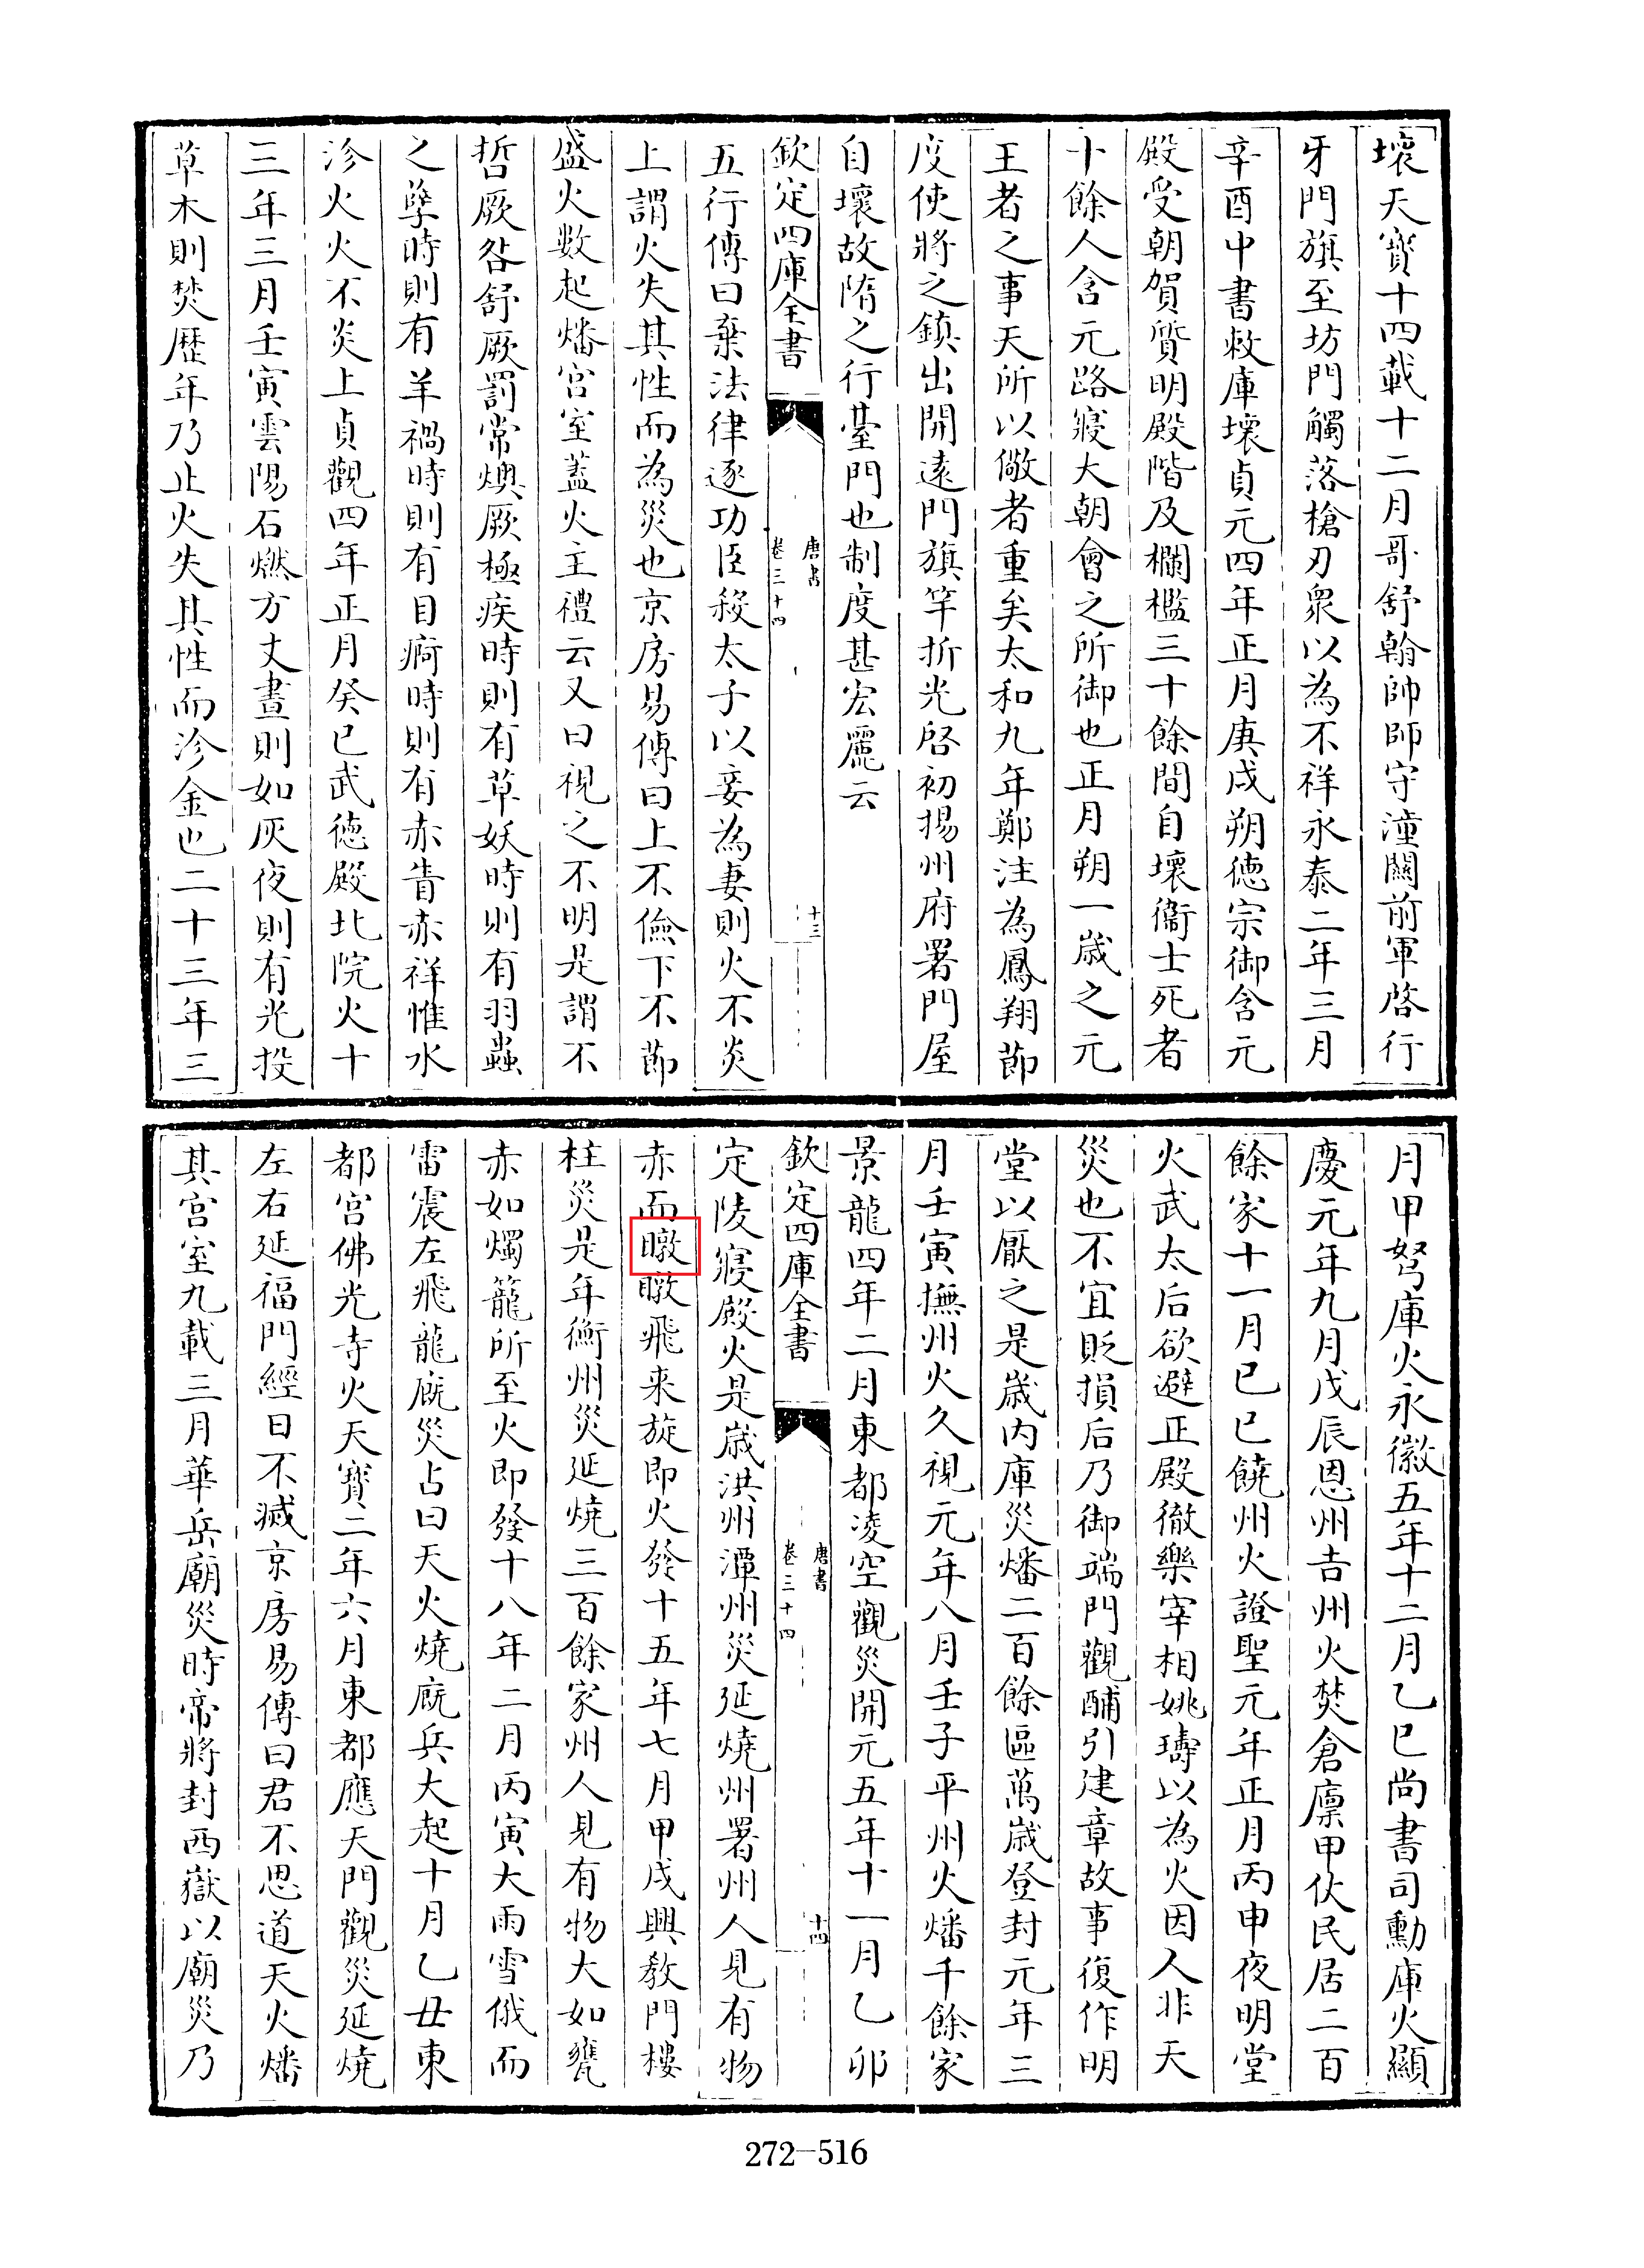 壞天寳十四載十二月哥舒翰帥師守潼關前軍啓行
牙門旗至坊門觸落槍刃衆以為不祥永泰二年三月
辛酉中書敕庫壞貞元四年正月庚戌朔德宗御含元
殿受朝賀質明殿階及欄檻三十餘間自壞衞士死者
十餘人含元路寢大朝會之所御也正月朔一歲之元
王者之事天所以儆者重矣太和九年鄭注為鳳翔節
度使將之鎮出開遠門旗竿折光啓初揚州府署門屋
自壞故隋之行臺門也制度甚宏麗云
欽定四庫全書
唐書
卷三十四
十三
五行傳曰棄法律逐功臣殺太子以妾為妻則火不炎
上謂火失其性而為災也京房易傳曰上不儉下不節
盛火數起燔宮室蓋火主禮云又曰視之不明是謂不
哲厥咎舒厥罰常燠厥極疾時則有草妖時則有羽蟲
之孽時則有羊禍時則有目痾時則有赤眚赤祥惟水
沴火火不炎上貞觀四年正月癸巳武德殿北院火十
三年三月壬寅雲陽石燃方丈晝則如灰夜則有光投
草木則焚歷年乃止火失其性而沴金也二十三年三
月甲弩庫火永徽五年十二月乙巳尚書司勳庫火顯
慶元年九月戊辰恩州吉州火焚倉廩甲仗民居二百
餘家十一月己巳饒州火證聖元年正月丙申夜明堂
火武太后欲避正殿徹樂宰相姚璹以為火因人非天
災也不宜貶損后乃御端門觀酺引建章故事復作明
堂以厭之是歲内庫災燔二百餘區萬歲登封元年三
月壬寅撫州火久視元年八月壬子平州火燔千餘家
景龍四年二月東都凌空觀災開元五年十一月乙卯
欽定四庫全書
唐書
卷三十四
十四
定陵寢殿火是歲洪州潭州災延燒州署州人見有物
赤而暾暾飛来旋即火發十五年七月甲戌興教門樓
柱災是年衡州災延燒三百餘家州人見有物大如甕
赤如燭籠所至火即發十八年二月丙寅大雨雪俄而
雷震左飛龍廐災占曰天火燒廐兵大起十月乙丑東
都宫佛光寺火天寳二年六月東都應天門觀災延燒
左右延福門經日不滅京房易傳曰君不思道天火燔
其宫室九載三月華岳廟災時帝將封西嶽以廟災乃
272-516